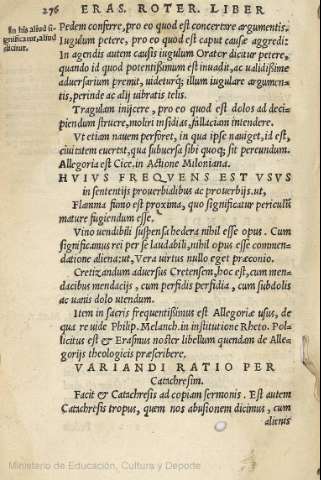 276 ERAS. ROTER. LIBER
In his aliud si-
gnificatur, aliud
dicitur.
Pedem conferre, pro eo quod est concertare argumentis.
Iugulum petere, pro eo quod est caput causæ aggredi:
In agendis autem causis iugulum Orator dicitur petere,
quando id quod potentissimum est inuadit, ac ualidissime
aduersarium premit, uideturq; illum iugulare argumen-
tis, perinde ac alij uibratis telis.
Tragulam inijcere, pro eo quod est dolos ad deci-
piendum struere, moliri insidias, fallaciam intendere.
Vt etiam nauem perforet, in qua ipse nauiget, id est,
ciuitatem euertat, qua subuersa sibi quoq; sit pereundum.
Allegoria est Cice. in Actione Miloniana.
HVIVS FREQVENS EST VSVS
in sententijs prouerbialibus ac prouerbijs. ut,
Flamma fumo est proxima, quo significatur periculũ
mature fugiendum esse.
Vino uendibili suspensa hedera nihil esse opus. Cum
significamus rei per se laudabili, nihil opus esse commen-
datione aliena: ut, Vera uirtus nullo eget præconio.
Cretizandum aduersus Cretensem, hoc est, cum men-
dacibus mendacijs, cum perfidis perfidia, cum subdolis
ac uanis dolo utendum.
Item in sacris frequentissimus est Allegoriæ usus, de
qua re uide Philip. Melanch. in institutione Rheto. Pol-
licitus est & Erasmus noster libellum quendam de Alle-
gorijs theologicis præscribere.
VARIANDI RATIO PER
Catachresim.
Facit & Catachresis ad copiam sermonis. Est autem
Catachresis tropus, quem nos abusionem dicimus, cum
alienis
Ministerio de Educación, Cultura y Deporte